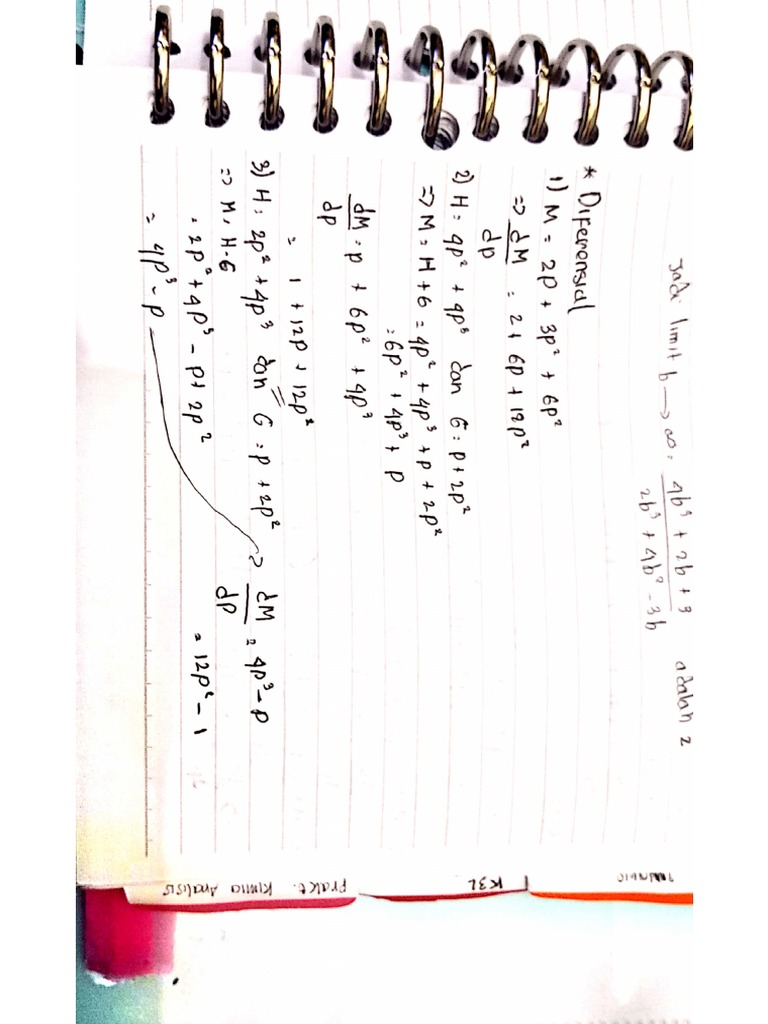 Jadi limit b → ∞ = (4b³ + 2b + 3)/(2b³ + 4b² - 3b) adalah 2
* Diferensial
1) M = 2p + 3p² + 6p²
⇒ dM/dp = 2 + 6p + 12p²
2) H = 4p² + 4p³ dan G = p + 2p²
⇒ M = H + G = 4p² + 4p³ + p + 2p²
= 6p² + 4p³ + p
dM/dp = p + 6p² + 4p³
= 1 + 12p + 12p²
3) H = 2p² + 4p³ dan G = p + 2p²
⇒ M = H - G
= 2p² + 4p³ - p + 2p²
= 4p³ - p
⇒ dM/dp = 4p³ - p
= 12p² - 1
K3L
Prakt. Kimia Analisis